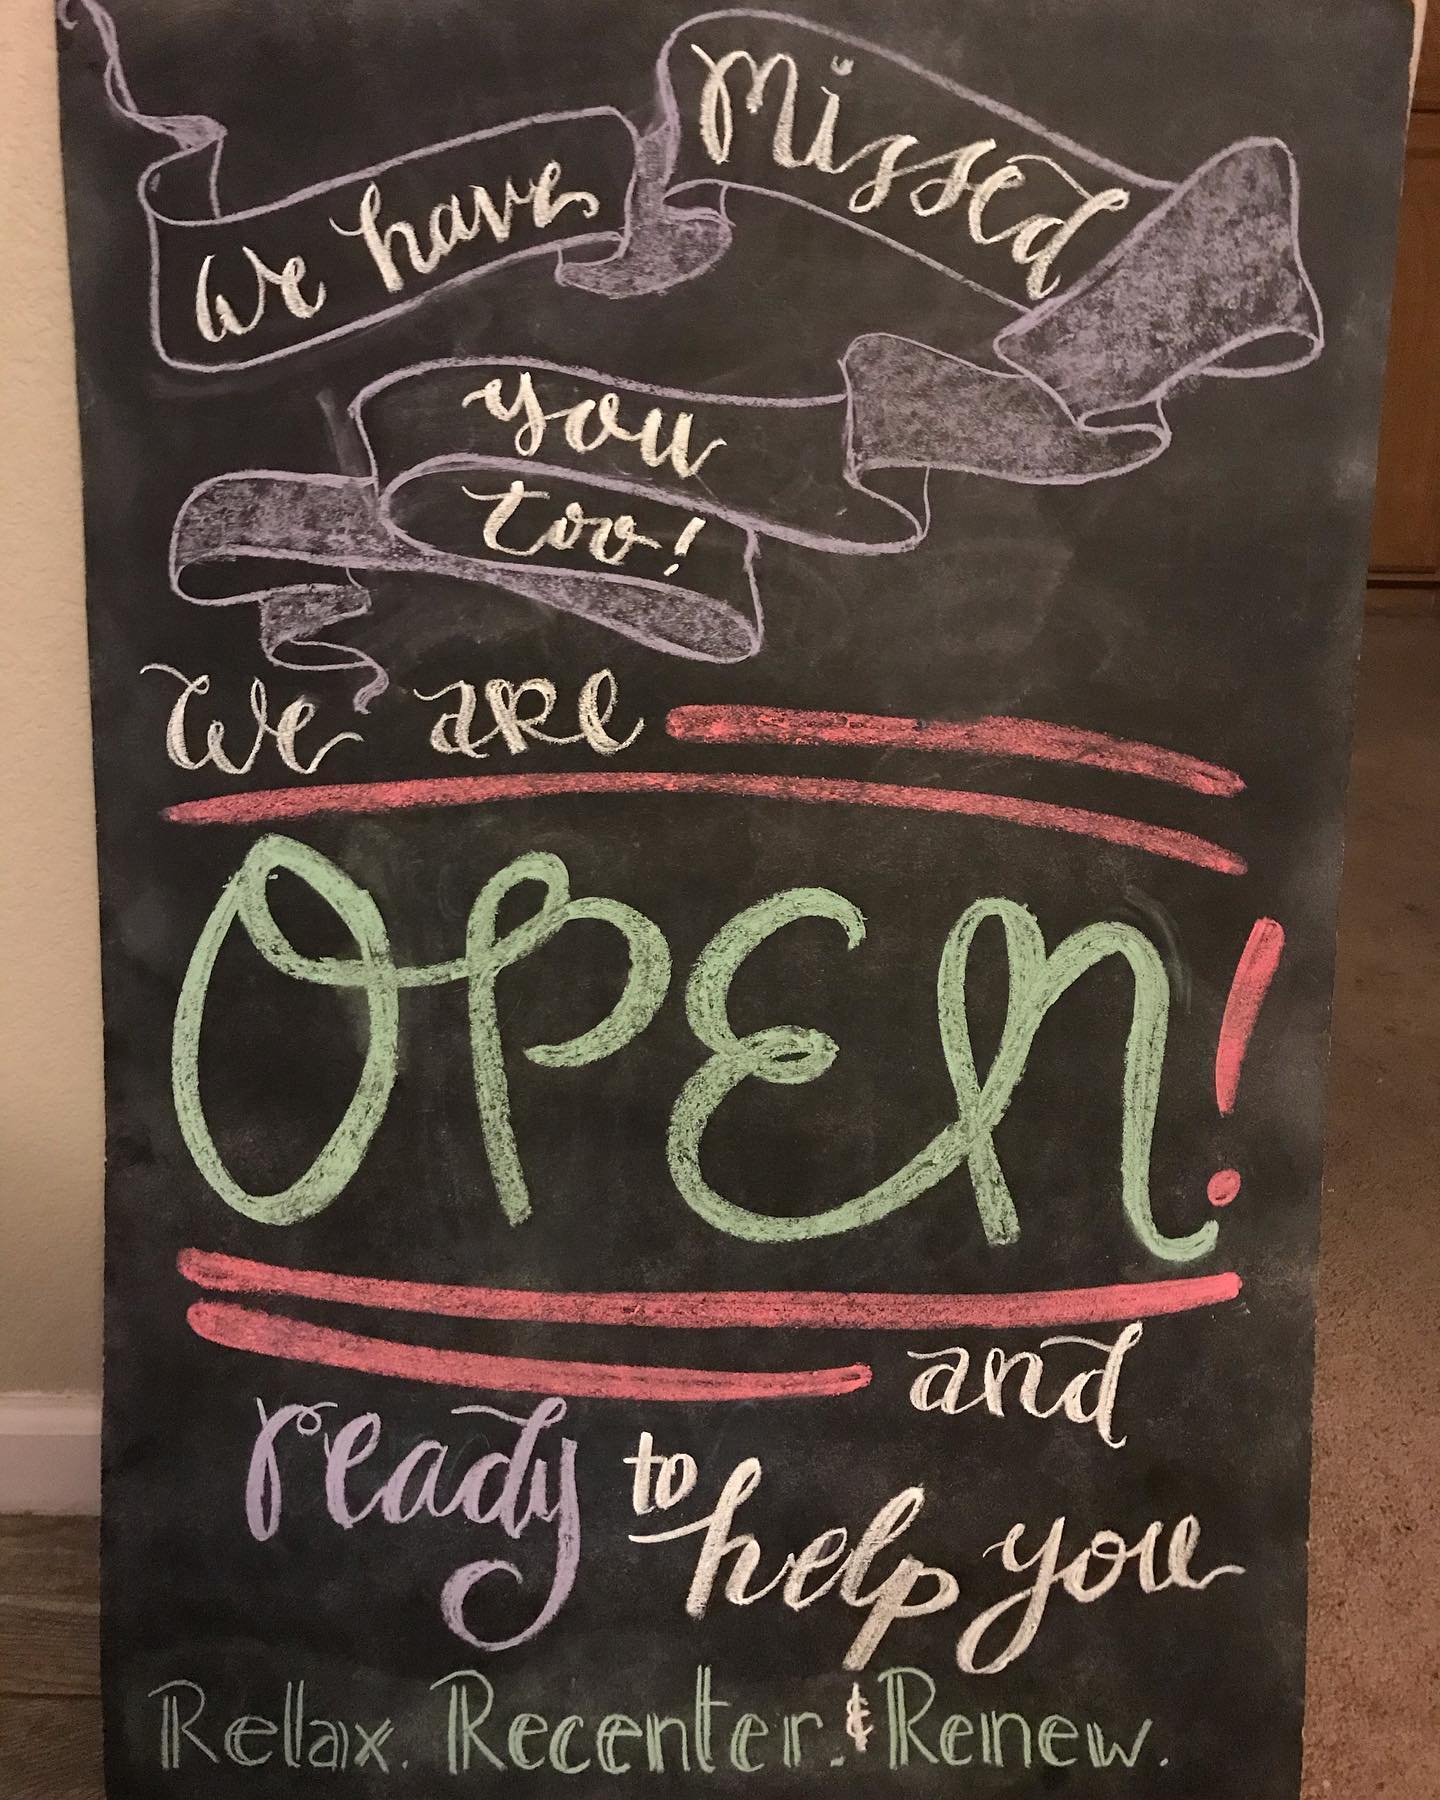 We have missed
you
too!
We are
OPEN!
and
ready to help you
Relax. Recenter. & Renew.